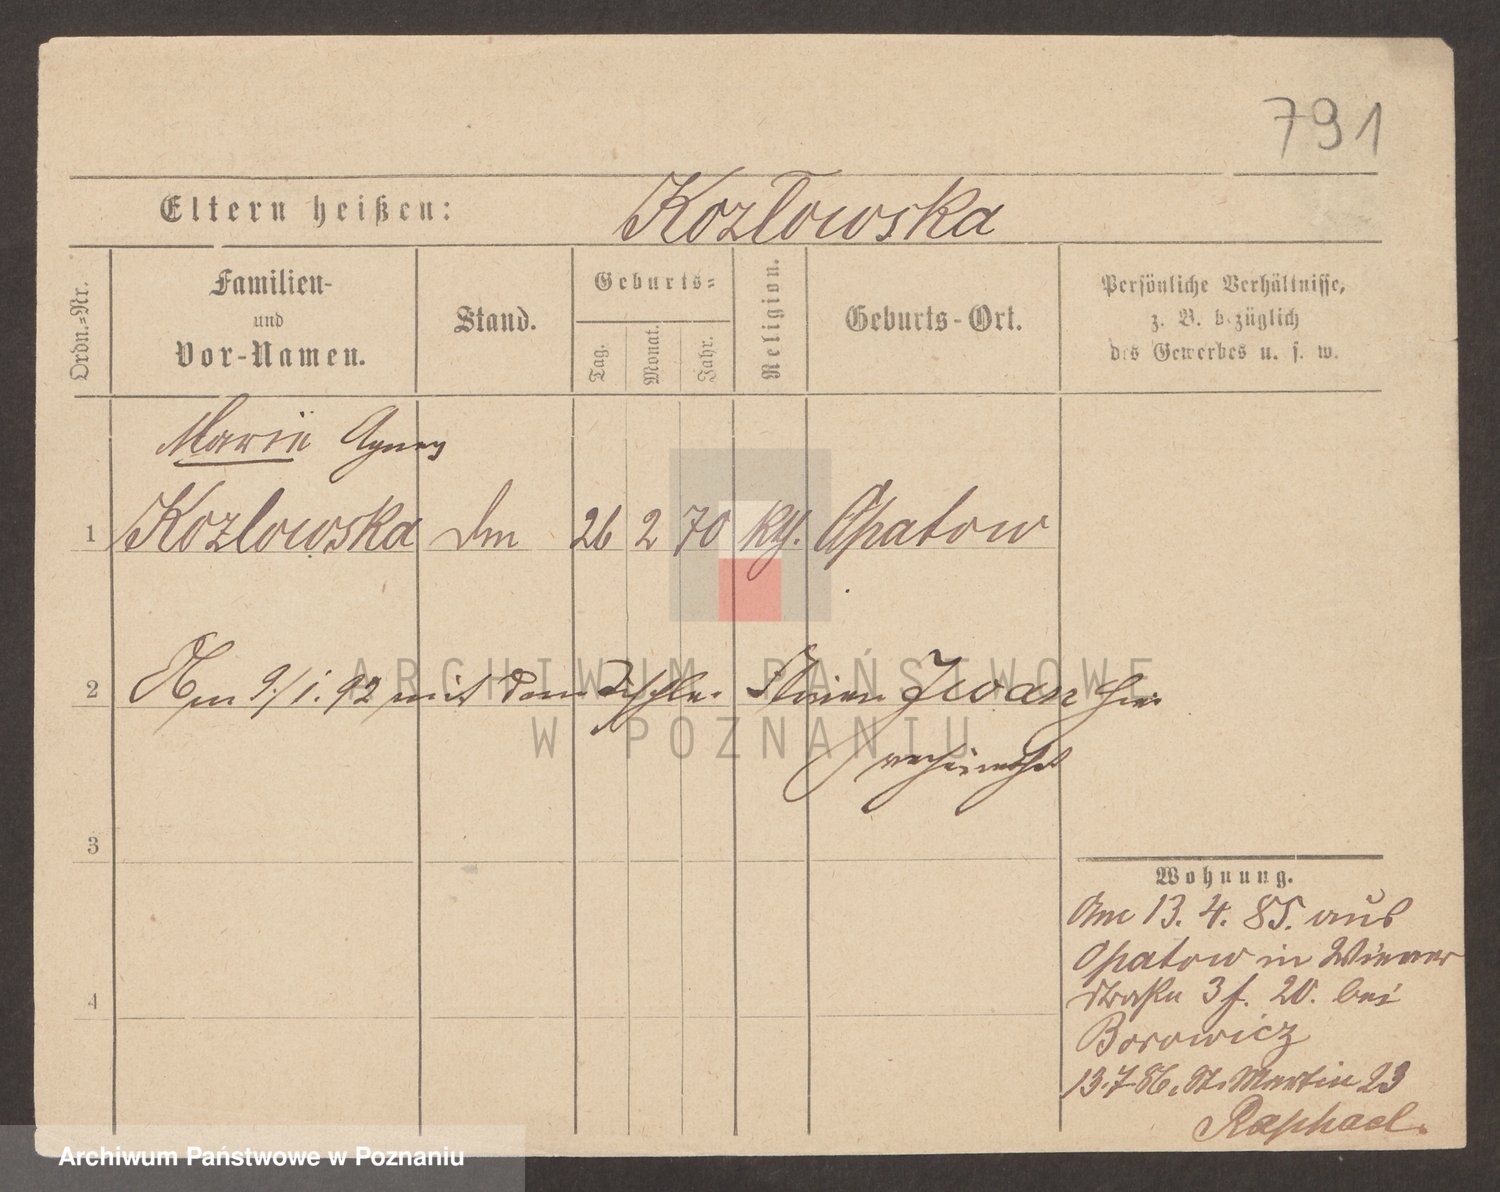 791
Eltern heißen: Kozłowska
Ordn.-Nr.
Familien-
und
Vor-Namen.
Stand.
Geburts-
Tag.
Monat.
Jahr.
Religion.
Geburts-Ort.
Persönliche Verhältnisse,
z. B. bezüglich
des Gewerbes u. s. w.
Marie Agnes
1 Kozlowska 26 2 70 Opatow
2 Am 9/1. 92 mit dem Tischler Iwan hier
verheirathet
3
4
Wohnung.
Am 13. 4. 85. aus
Opatow in Wiener
straße 3 f. 20. bei
Borowicz
13.7.86. St. Martin 23
Raphael.
ARCHIWUM PAŃSTWOWE
W POZNANIU
Archiwum Państwowe w Poznaniu